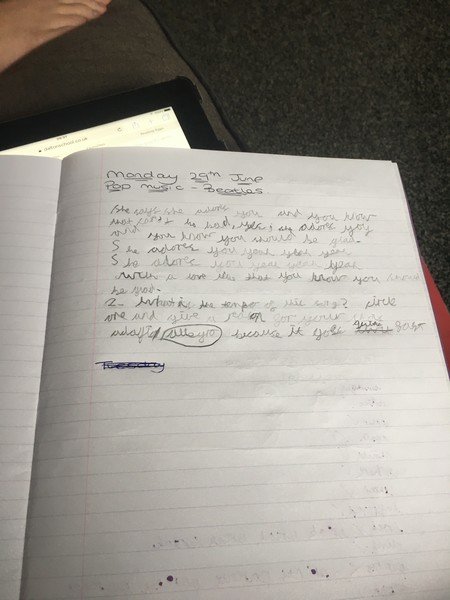 Monday 29th June
Pop music - Beatles
She says she adores you and you know
that can't be bad, yes, she adores you
and you know you should be glad.
She adores you yeah yeah yeah
She adores you yeah yeah yeah
with a love like that you know you should
be glad.
2- What is the tempo of the song? circle
one and give a reason for your
allegro because it goes quite fast
Tuesday